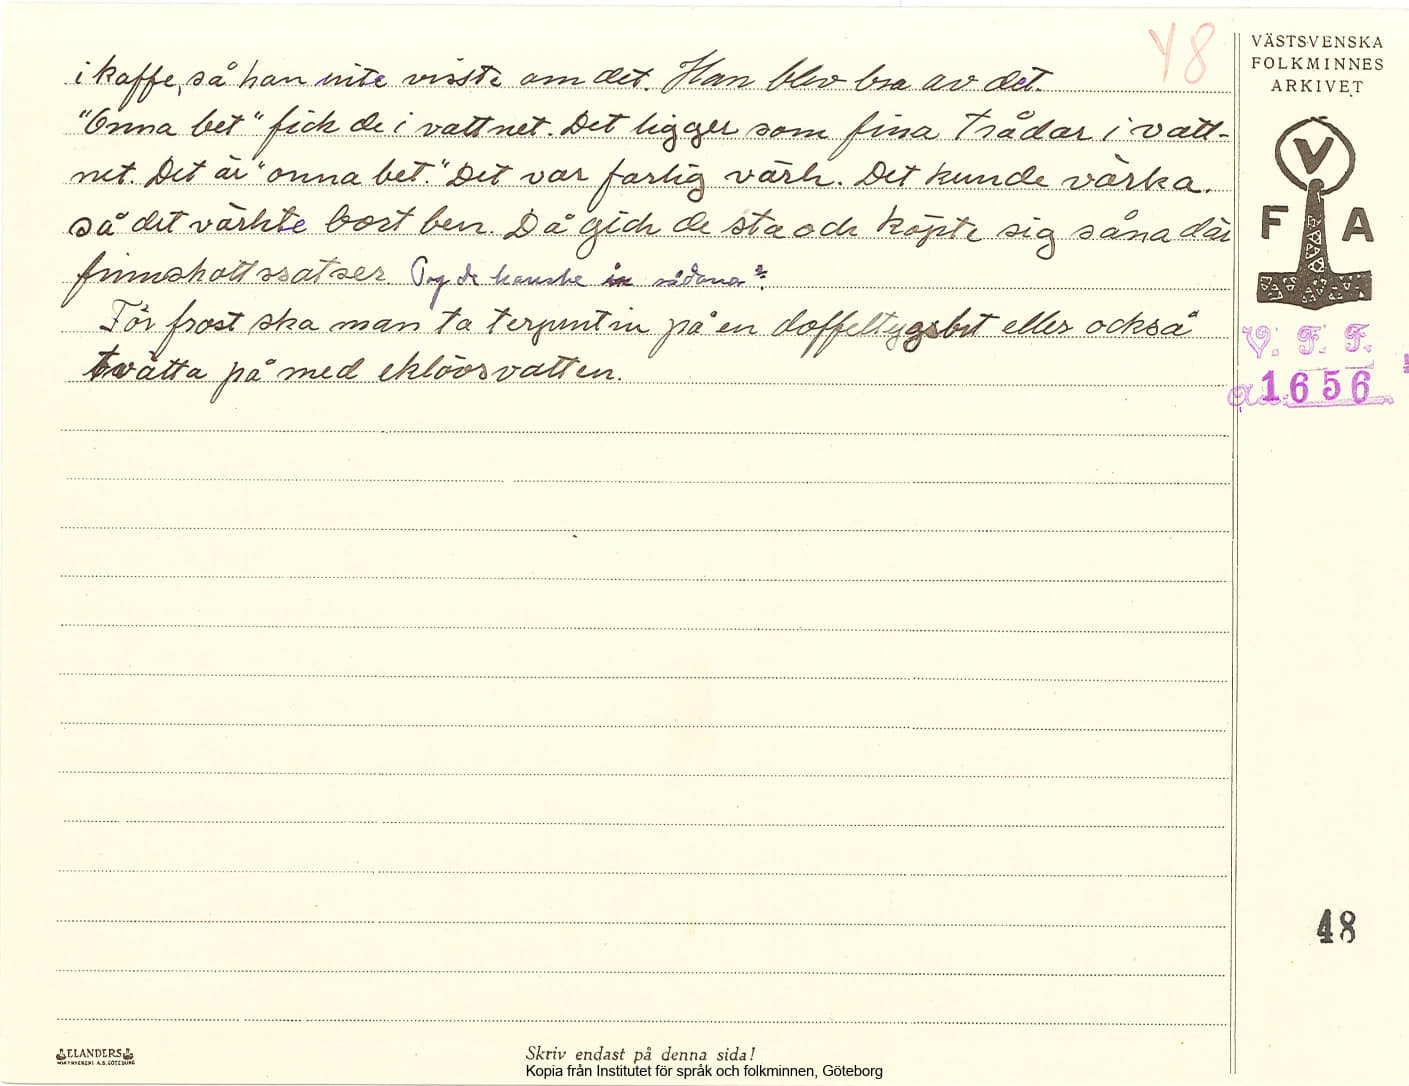 48
VÄSTSVENSKA
FOLKMINNES
ARKIVET
V
F A
V. F. F.
1656
i kaffe, så han inte visste om det. Han blev bra av det.
"Onna bet" fick de i vattnet. Det ligger som fina trådar i vatt-
net. Det är "onna bet." Det var farlig värk. Det kunde värka.
så det värkte bort ben. Då gick de sta och köpte sig såna där
finnskottssatser. Tog de kanske in sådana?
För frost ska man ta terpentin på en doffeltygsbit eller också
tvätta på med eklövsvatten.
48
ELANDERS
Skriv endast på denna sida!
Kopia från Institutet för språk och folkminnen, Göteborg